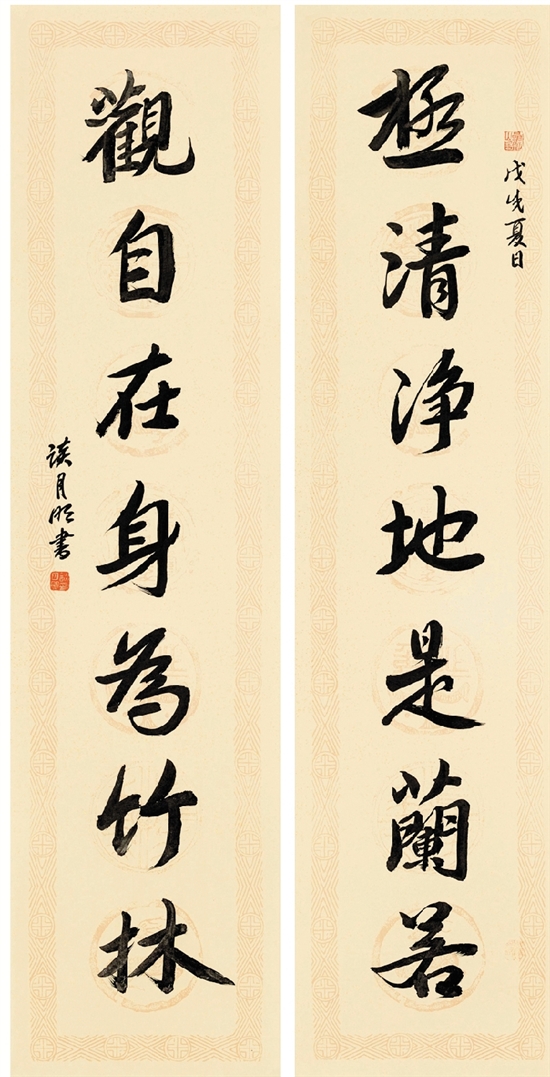 極清淨地是蘭若
戊戌夏日
觀自在身為竹林
談月明書